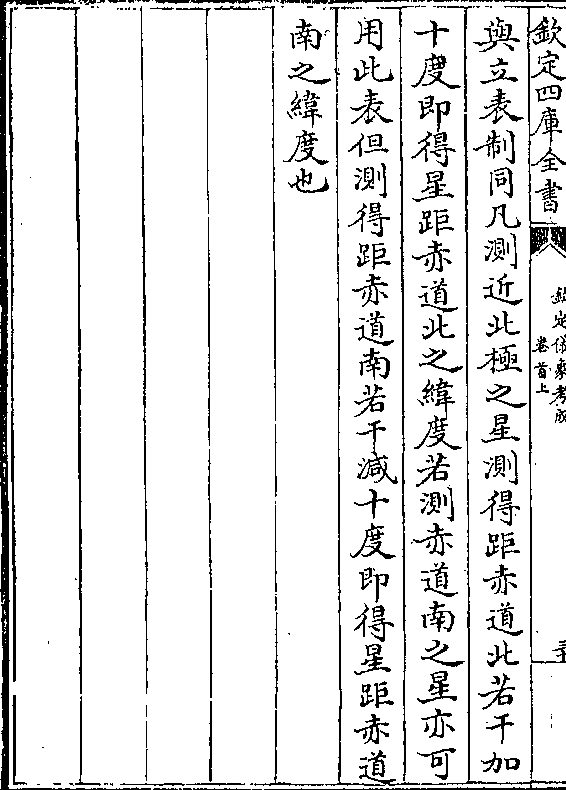 欽定四庫全書
欽定儀象考成
卷首上
與立表制同凡測近北極之星測得距赤道北若干加
十度即得星距赤道北之緯度若測赤道南之星亦可
用此表但測得距赤道南若干減十度即得星距赤道
南之緯度也